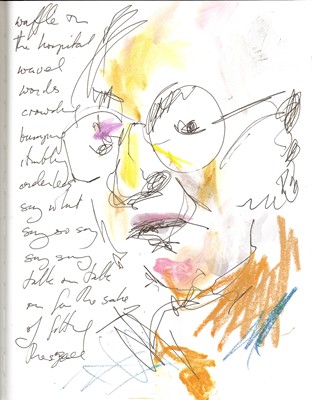 waffle on
the hospital
waves
words
crowding
bumping
stumbling
orderless
say what
say so say
say say
talk on talk
on for the sake
of filling
the space